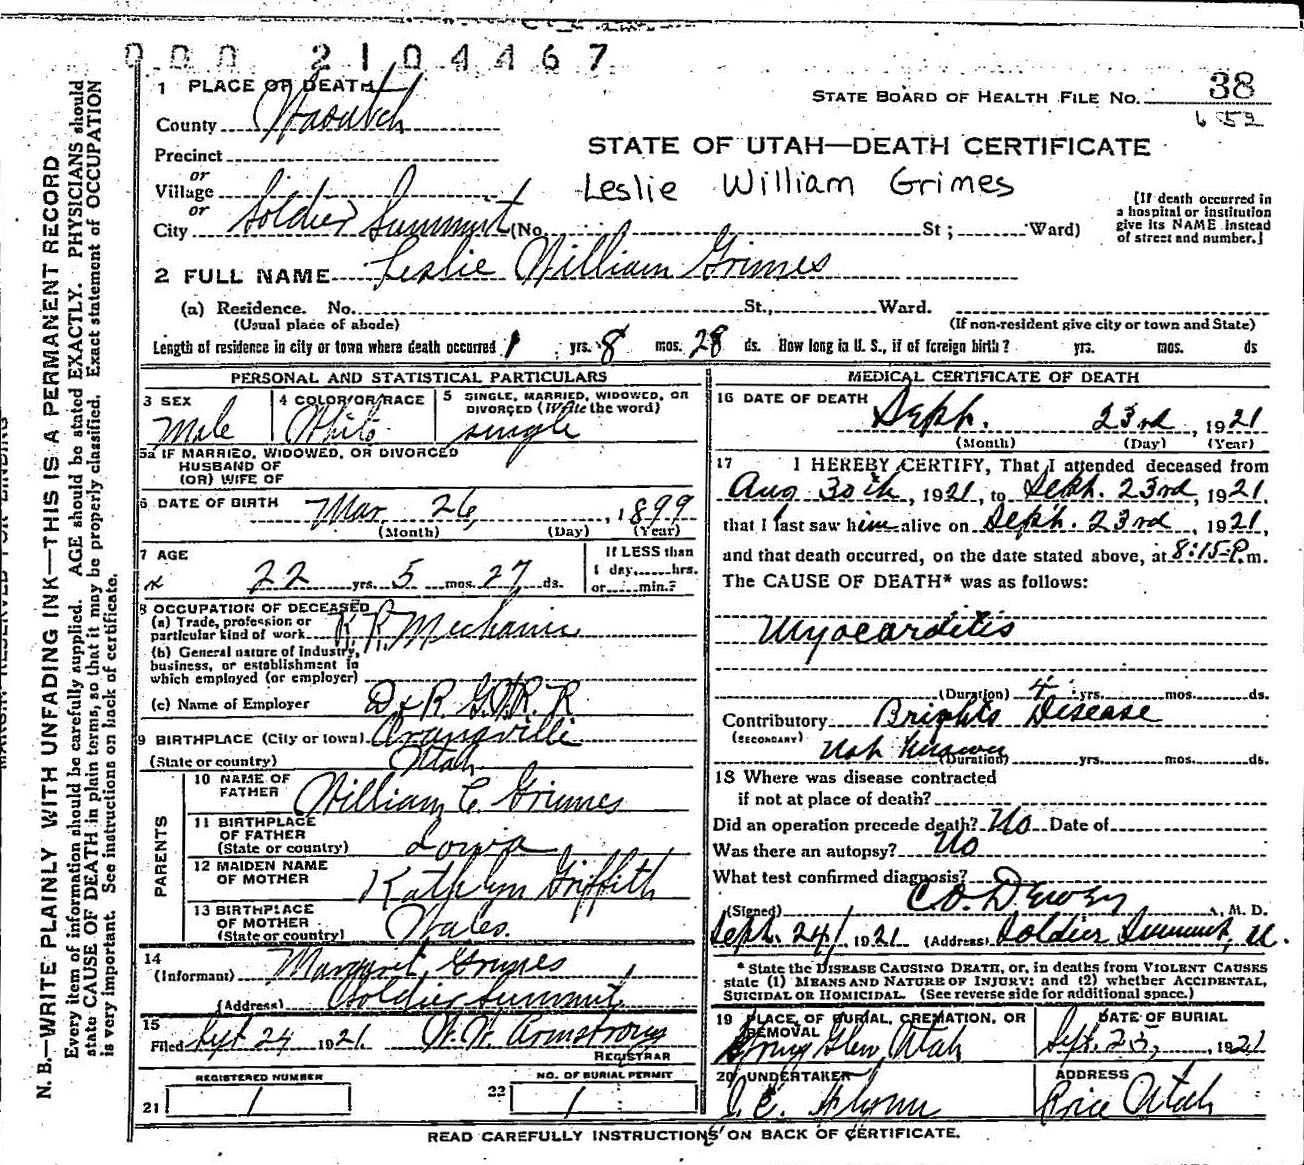 000 2104467
1 PLACE OF DEATH
STATE BOARD OF HEALTH FILE NO. 38
County Wasatch
652
Precinct
STATE OF UTAH—DEATH CERTIFICATE
or
Village
Leslie William Grimes
or
City Soldier Summit (No. St; Ward)
[If death occurred in
a hospital or institution
give its NAME instead
of street and number.]
2 FULL NAME Leslie William Grimes
(a) Residence. No. St., Ward.
(Usual place of abode) (If non-resident give city or town and State)
Length of residence in city or town where death occurred 1 yrs. 8 mos. 28 ds. How long in U. S., if of foreign birth? yrs. mos. ds
PERSONAL AND STATISTICAL PARTICULARS
3 SEX
Male
4 COLOR OR RACE
White
5 SINGLE, MARRIED, WIDOWED, OR
DIVORCED (Write the word)
single
5a IF MARRIED, WIDOWED, OR DIVORCED
HUSBAND OF
(OR) WIFE OF
6 DATE OF BIRTH Mar 26, 1899
(Month) (Day) (Year)
7 AGE
22 yrs. 5 mos. 27 ds.
If LESS than
1 day, hrs.
or min.?
8 OCCUPATION OF DECEASED
(a) Trade, profession or
particular kind of work R.R. Mechanic
(b) General nature of industry,
business, or establishment in
which employed (or employer)
(c) Name of Employer D & R. G. W. R. R
9 BIRTHPLACE (City or town) Orangville
(State or country) Utah
PARENTS
10 NAME OF
FATHER William C. Grimes
11 BIRTHPLACE
OF FATHER
(State or country) Iowa
12 MAIDEN NAME
OF MOTHER Kathlyn Griffith
13 BIRTHPLACE
OF MOTHER
(State or country) Wales.
14
(Informant) Margaret Grimes
(Address) Soldier Summit,
15
Filed Sept 24 1921 W. W. Armstrong
REGISTRAR
REGISTERED NUMBER
21 1
NO. OF BURIAL PERMIT
22 1
MEDICAL CERTIFICATE OF DEATH
16 DATE OF DEATH
Sept. 23rd, 1921
(Month) (Day) (Year)
17 I HEREBY CERTIFY, That I attended deceased from
Aug 30th, 1921, to Sept. 23rd, 1921,
that I last saw him alive on Sept. 23rd, 1921,
and that death occurred, on the date stated above, at 8:15 P.m.
The CAUSE OF DEATH* was as follows:
Myocarditis
(Duration) 4 yrs. mos. ds.
Contributory Brights Disease
(SECONDARY) Not Known
(Duration) yrs. mos. ds.
18 Where was disease contracted
if not at place of death?
Did an operation precede death? No Date of
Was there an autopsy? No
What test confirmed diagnosis?
(Signed) C.O. Dewey, M. D.
Sept. 24/ 1921 (Address) Soldier Summit, U.
* State the DISEASE CAUSING DEATH, or, in deaths from VIOLENT CAUSES
state (1) MEANS AND NATURE OF INJURY; and (2) whether ACCIDENTAL,
SUICIDAL OR HOMICIDAL. (See reverse side for additional space.)
19 PLACE OF BURIAL, CREMATION, OR
REMOVAL
Spring Glen, Utah
DATE OF BURIAL
Sept. 25, 1921
20 UNDERTAKER
J. E. Flynn
ADDRESS
Price Utah
READ CAREFULLY INSTRUCTIONS ON BACK OF CERTIFICATE.
N. B.—WRITE PLAINLY WITH UNFADING INK—THIS IS A PERMANENT RECORD
Every item of information should be carefully supplied. AGE should be stated EXACTLY. PHYSICIANS should
state CAUSE OF DEATH in plain terms, so that it may be properly classified. Exact statement of OCCUPATION
is very important. See instructions on back of certificate.